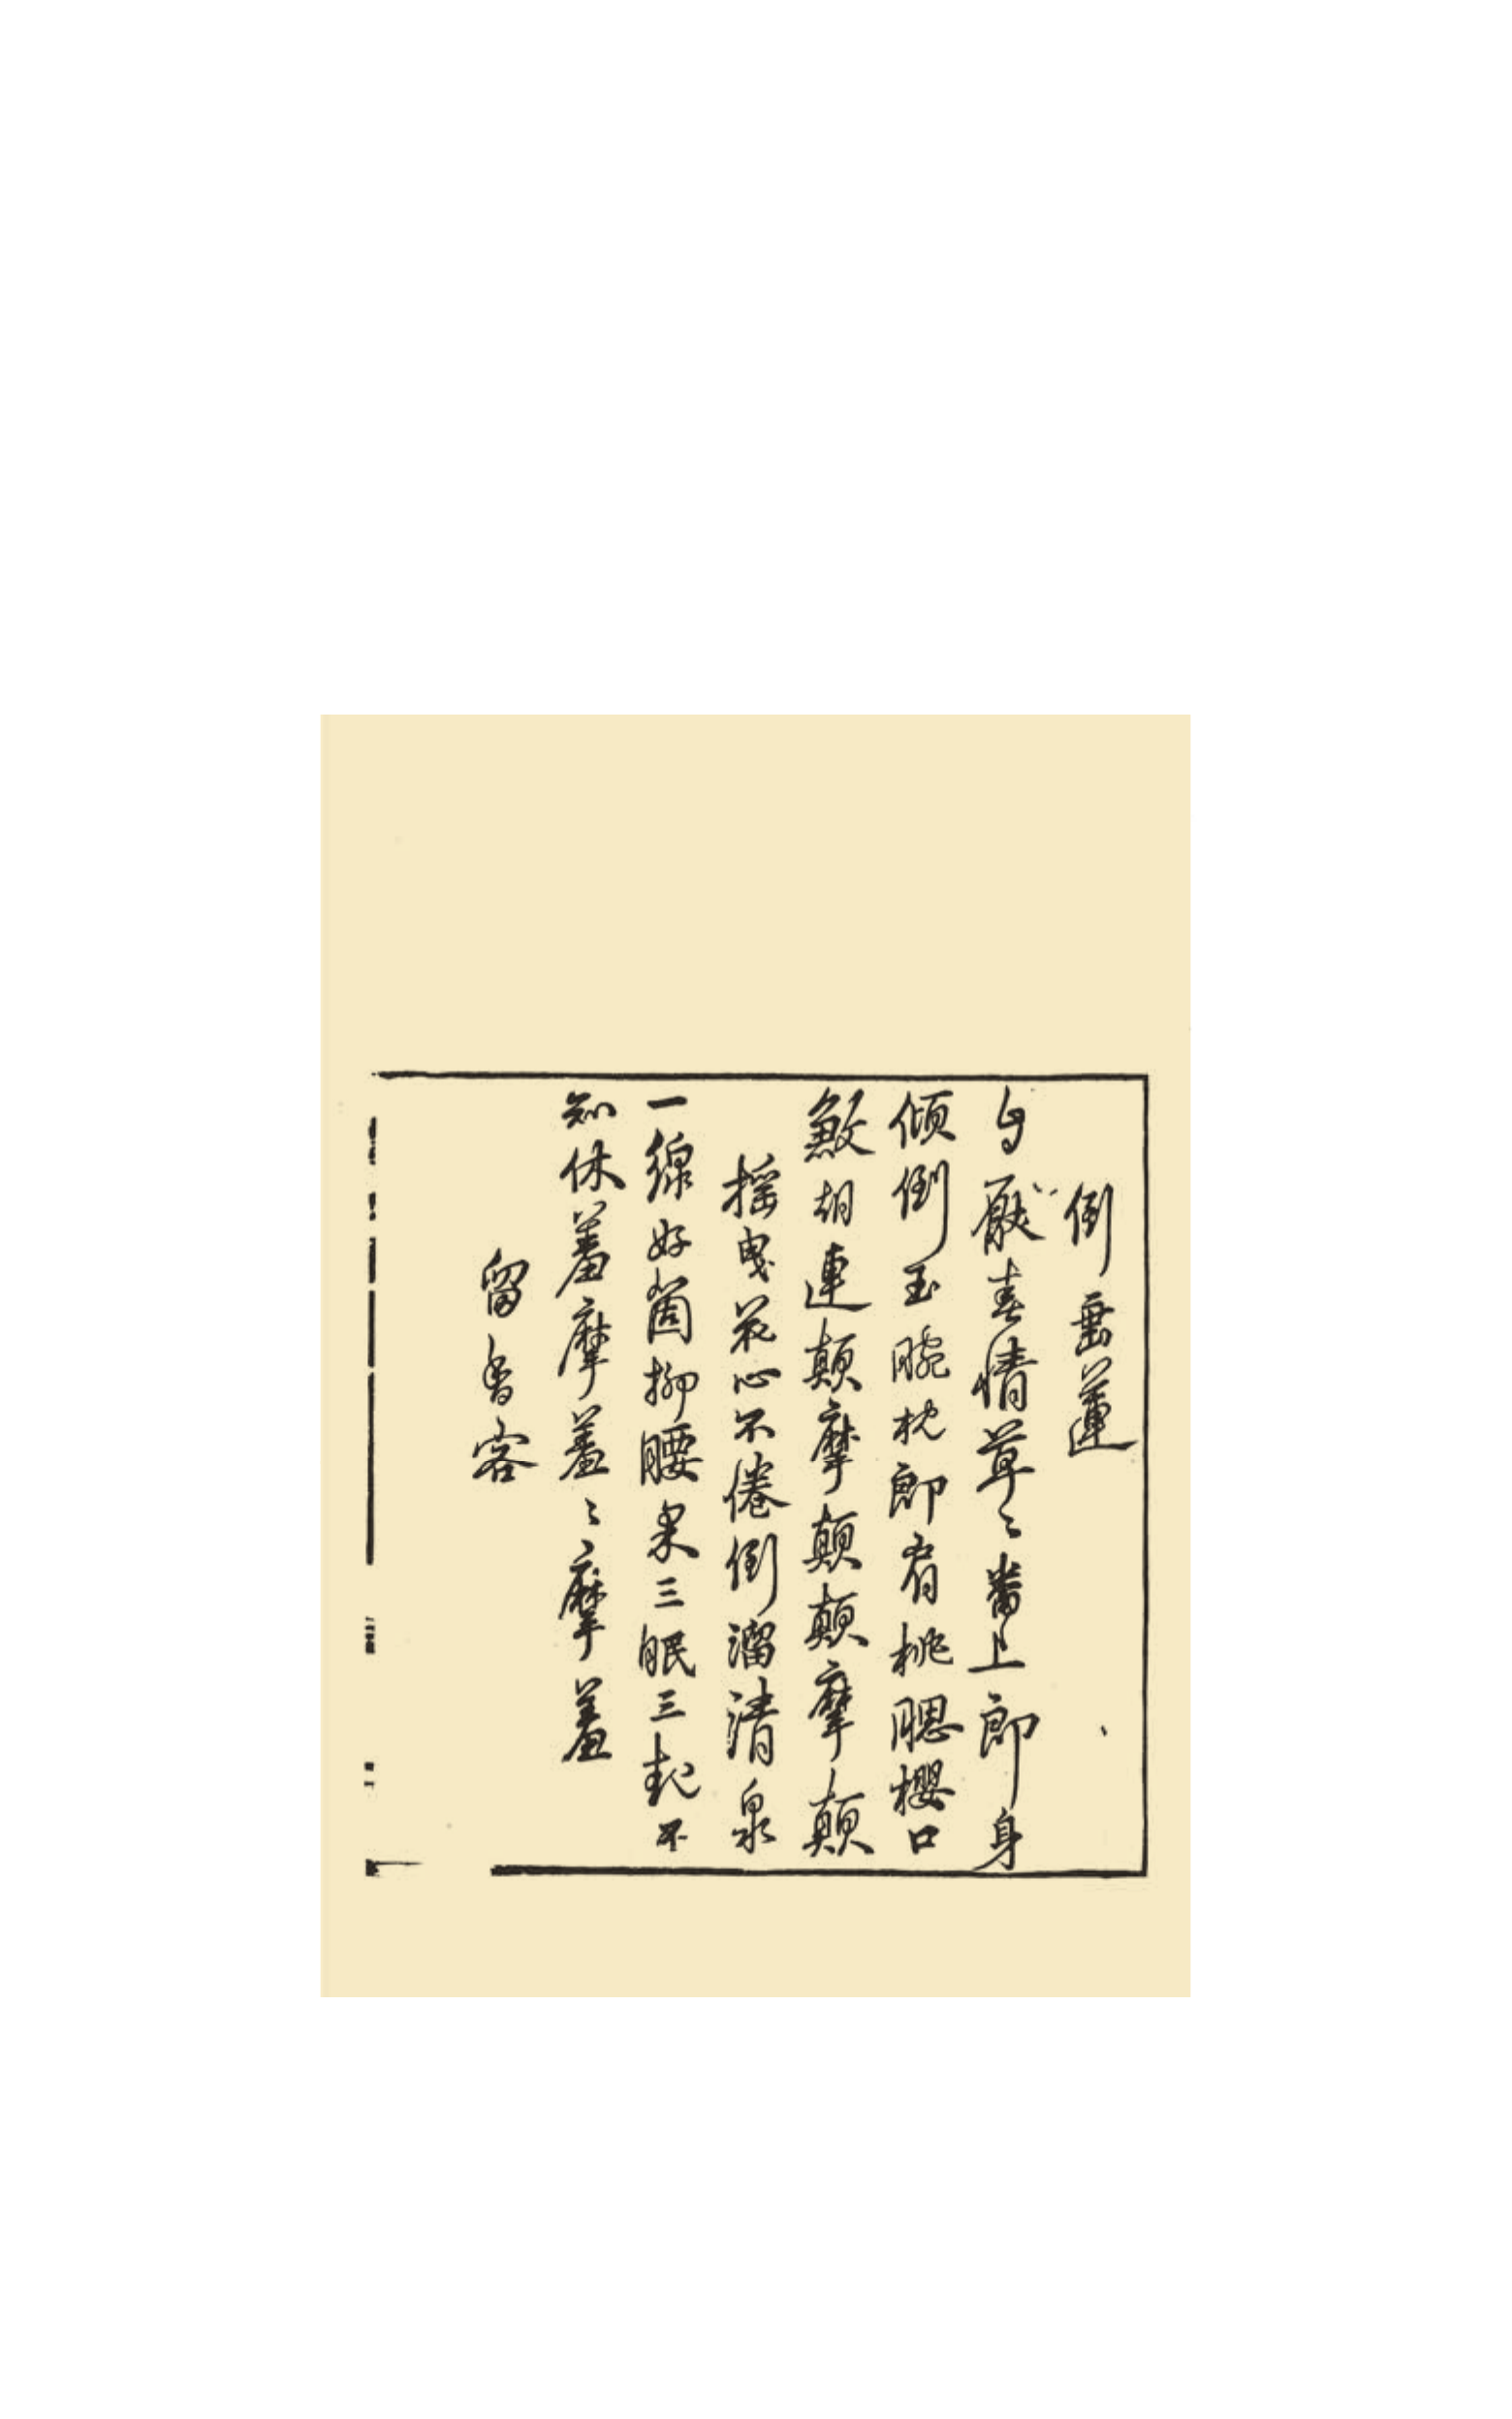 倒垂蓮
与厭春情草〻番上郎身
傾倒玉腕枕郎肩桃腮櫻口
胡連顛摩顛顛摩顛
摇曳花心不倦倒溜清泉
一線好箇柳腰三眠三起不
知休羞摩羞〻摩羞
留香客